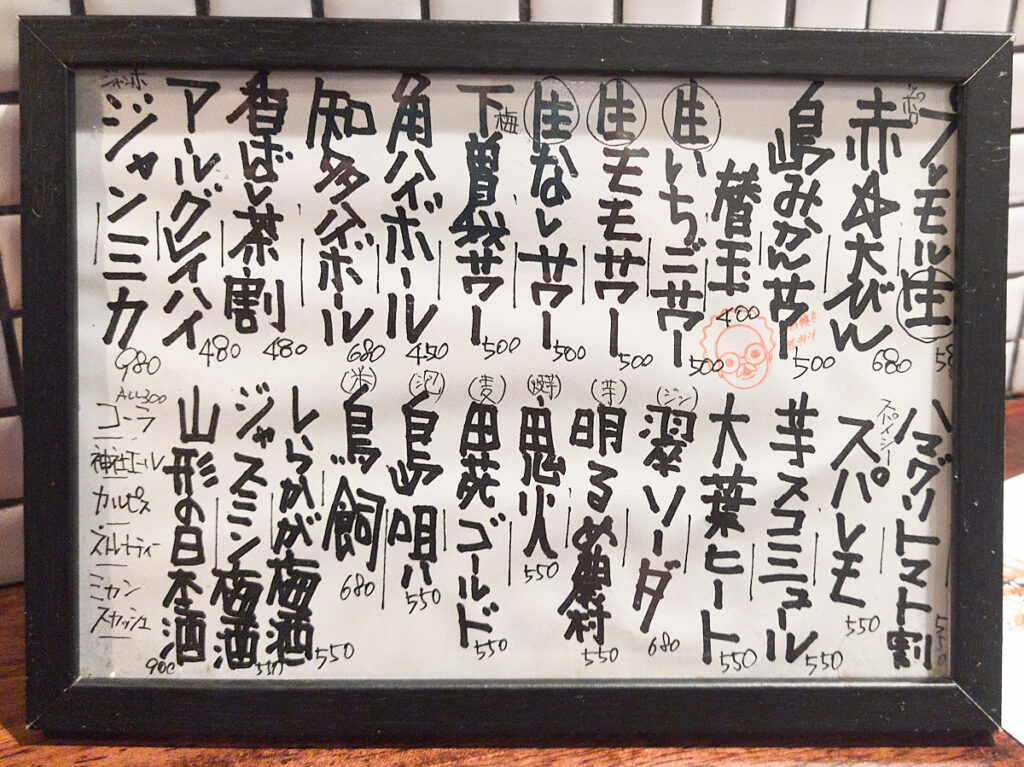 プレモル生
58
サッポロ
赤☆大びん
680
島みかんサワー
500
替玉
400
生いちごサワー
500
生モモサワー
500
生なしサワー
500
梅
下曽我サワー
500
角ハイボール
450
知多ハイボール
680
香ばし茶割
480
アールグレイハイ
480
ジャンボ
ジャンミカ
980
ハマグリトマト割
550
スパイシー
スパレモ
550
芋スコミュール
550
大葉ヒート
550
(ジン)
翠ソーダ
680
(芋)
明るめ農村
550
鬼火
550
(麦)
田苑ゴールド
550
(泡)
島唄
550
(米)
鳥飼
680
しらかが梅酒
550
ジャスミン梅酒
550
山形の日本酒
900
ALL300
コーラ
神社エール
カルピス
ストレートティー
ミカン
スカッシュ